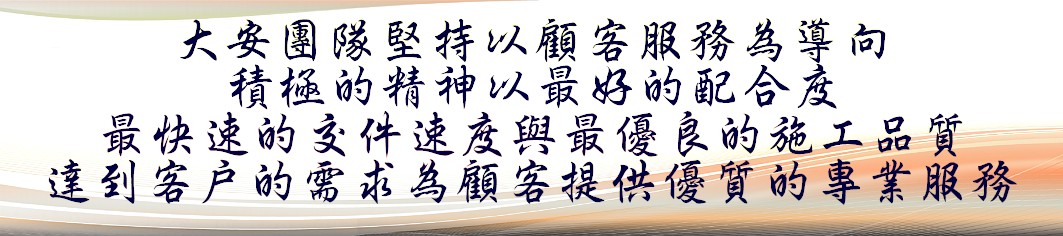 大安團隊堅持以顧客服務為導向
積極的精神以最好的配合度
最快速的交件速度與最優良的施工品質
達到客戶的需求為顧客提供優質的專業服務